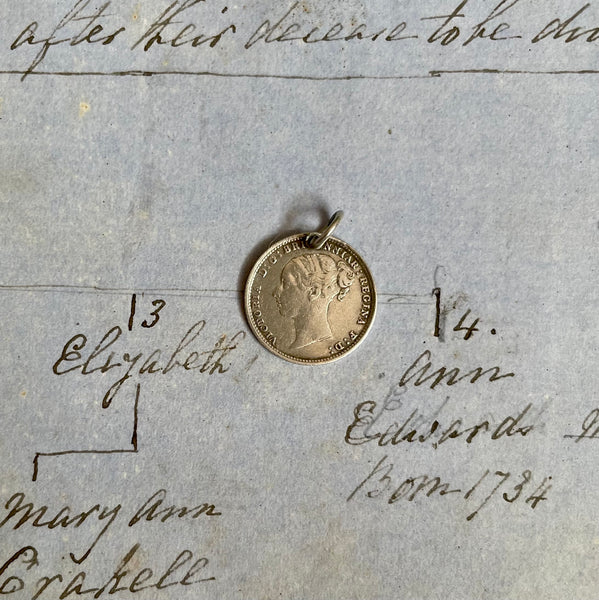 after their decease to be
13
14.
Elizabeth
Ann
Edwards
Born 1734
Mary Ann
Crakell
VICTORIA DEI GRATIA BRITANNIAR: REGINA F: D: